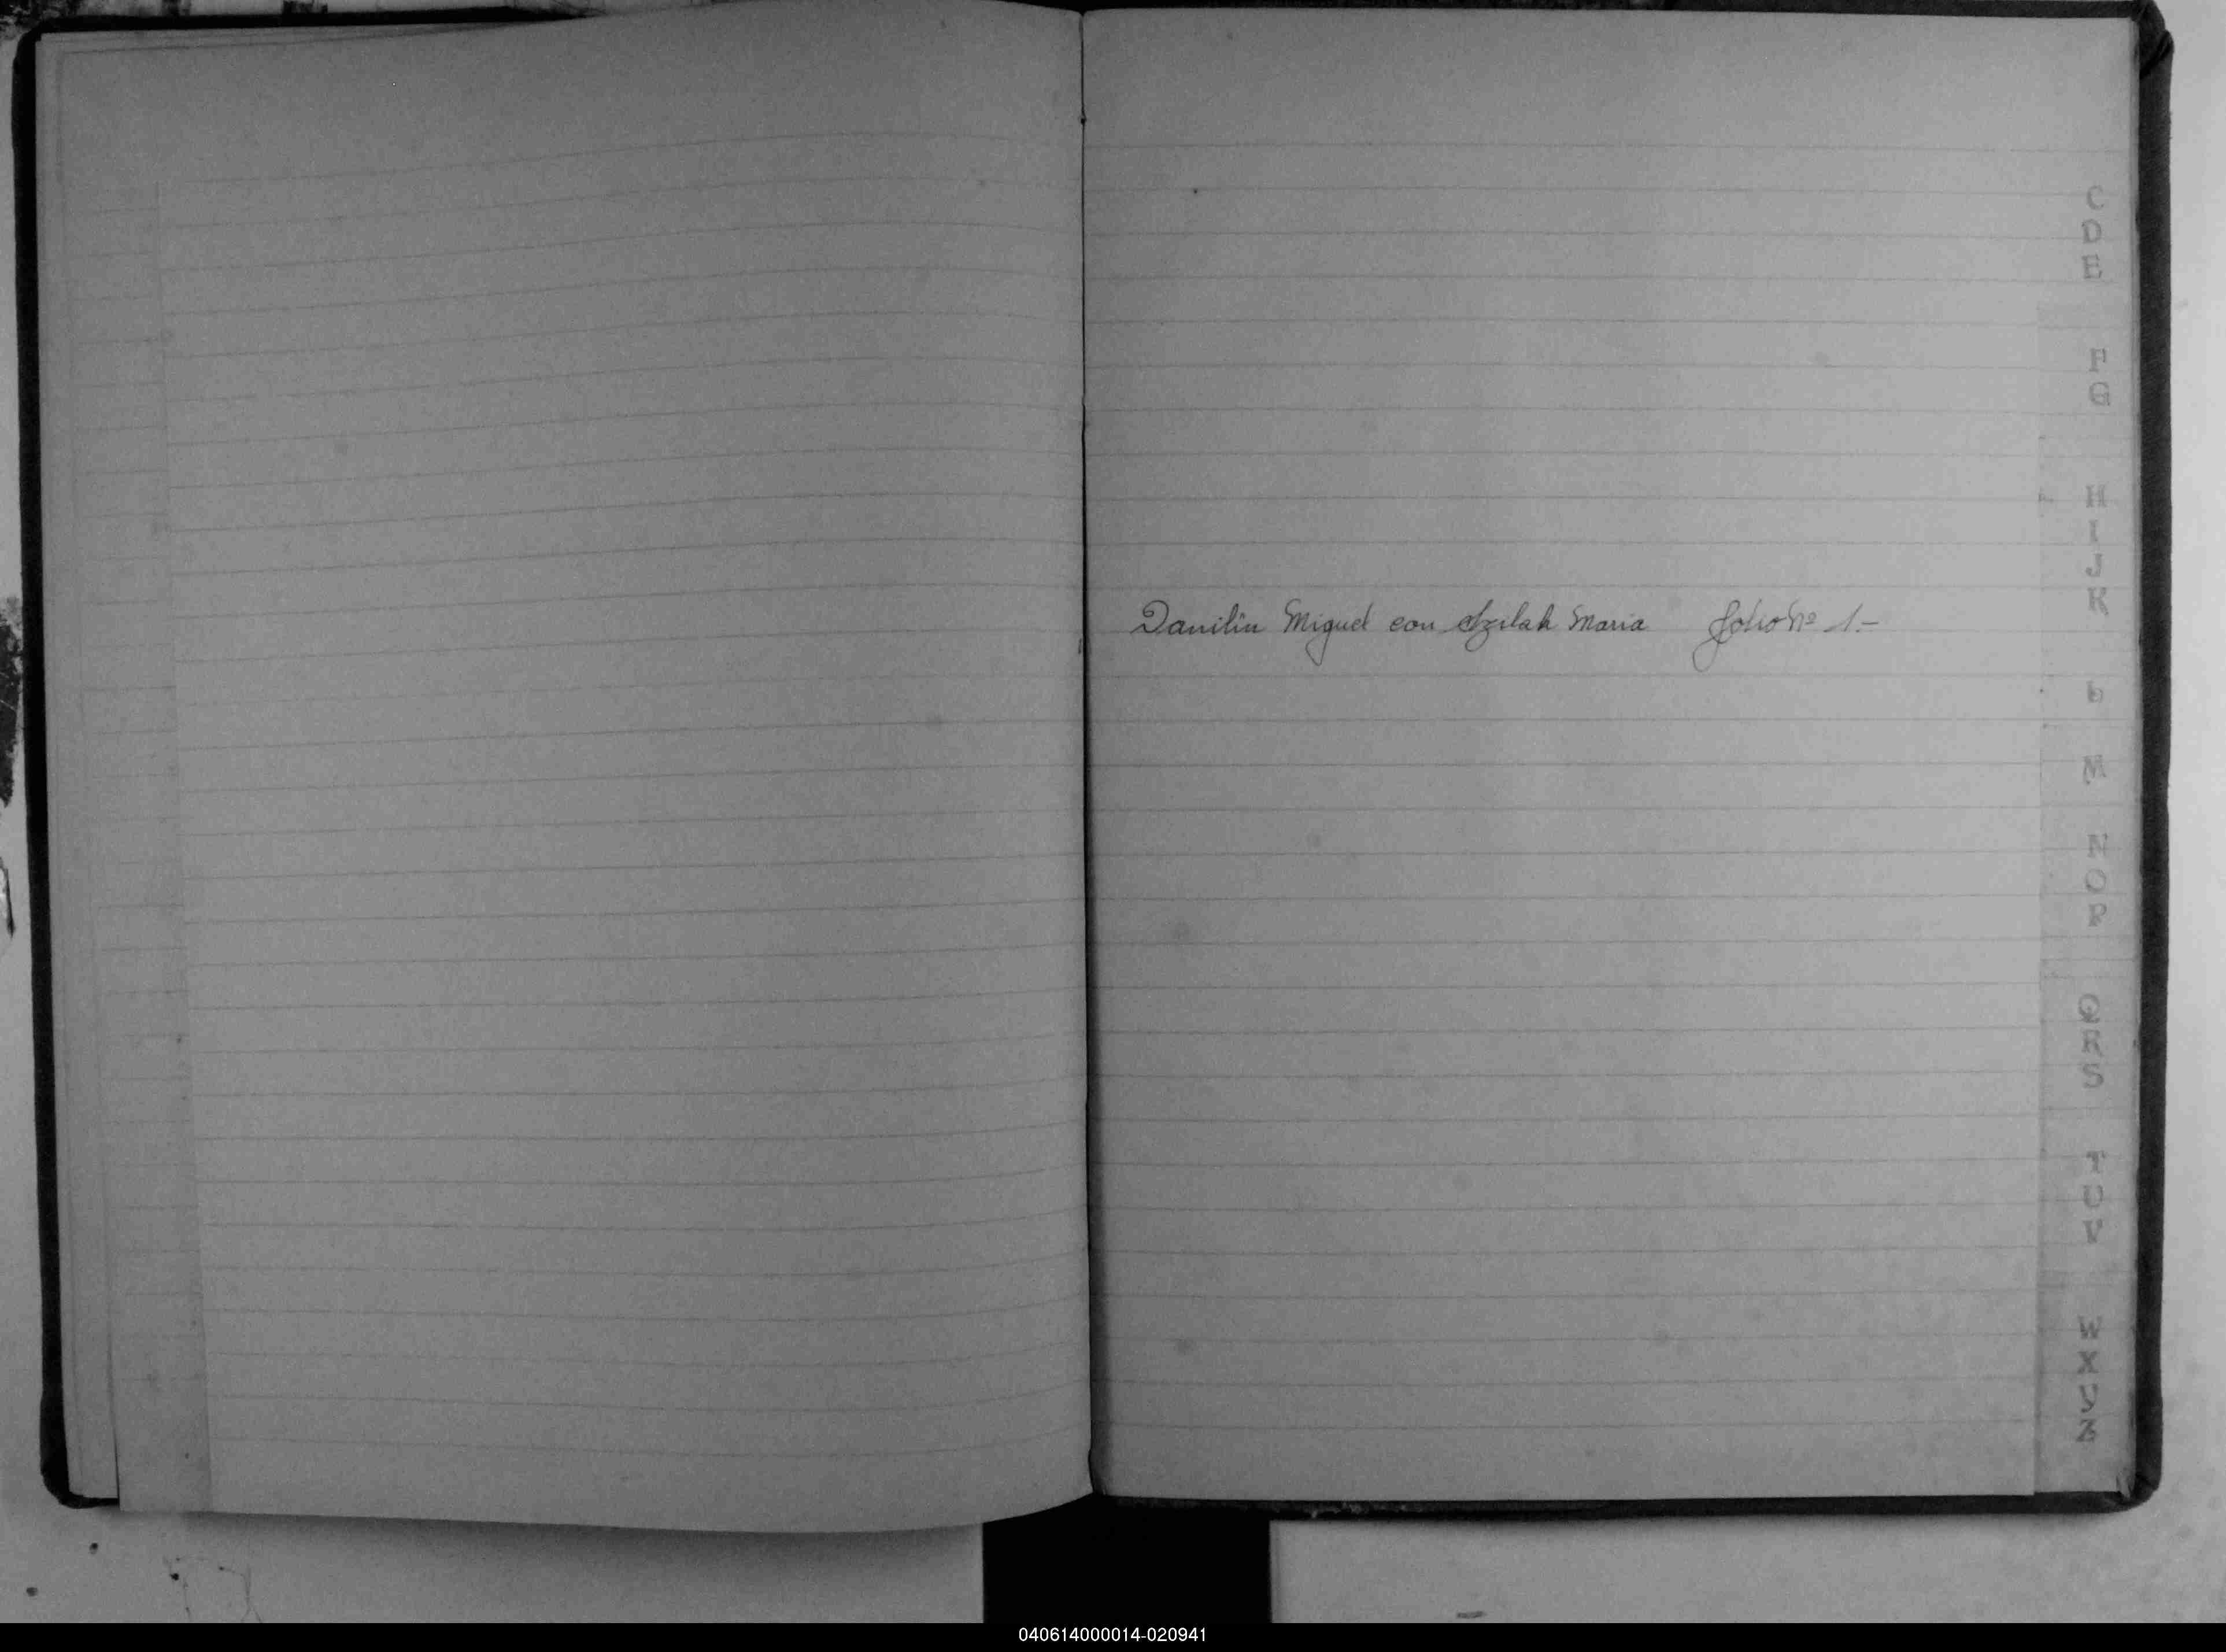 C
D
E
F
G
H
I
J
K
Danilin Miguel con Maria Folio Nº 1.-
L
M
N
O
P
Q
R
S
T
U
V
W
X
Y
Z
040614000014-020941